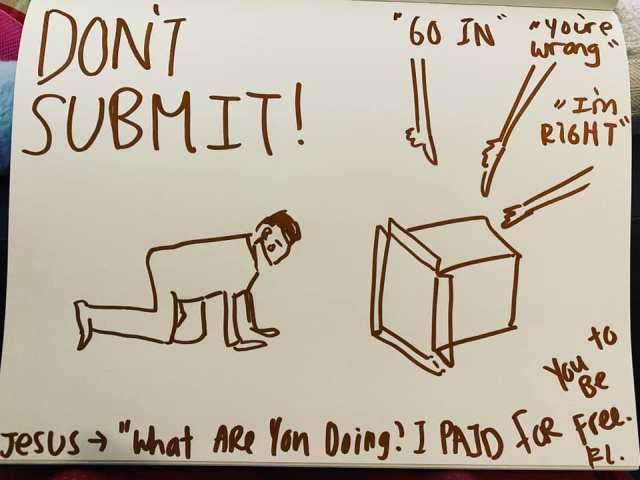 DON'T
SUBMIT!
"GO IN"
"You're
wrong"
"I'm
RIGHT"
Jesus → "What ARe You Doing? I PAID foR
You to
Be
free.